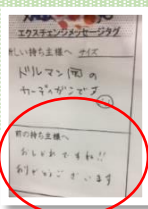 エクスチェンジメッセージタグ
しい持ち主様へ サイズ
ドリルマン
の
カーディガンです
前の持ち主様へ
おしゃれですね!!
ありがとうございます